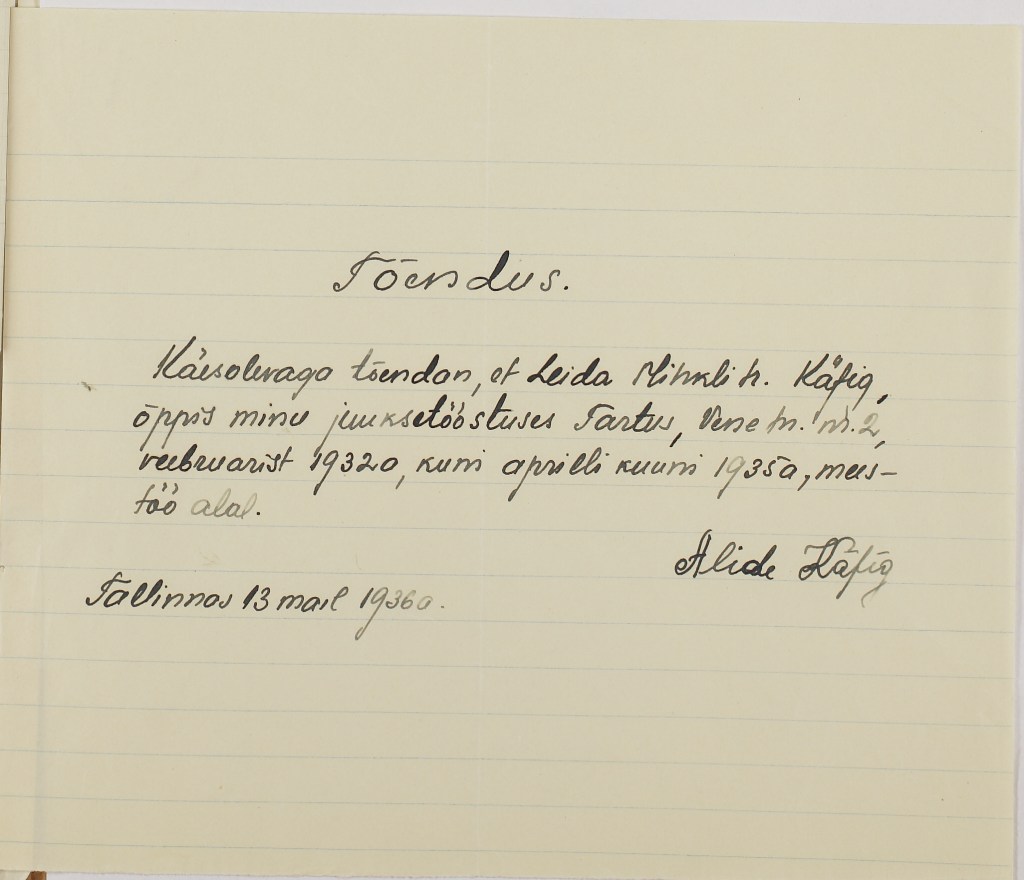 Tõendus.
Käesolevaga tõendan, et Leida Mihkli tr. Käfig,
õppis minu juuksetööstuses Tartus, Vene tn. nr. 2,
veebruarist 1932a, kuni aprilli kuuni 1935a, mees-
töö alal.
Alide Käfig
Tallinnas 13 mail 1936a.